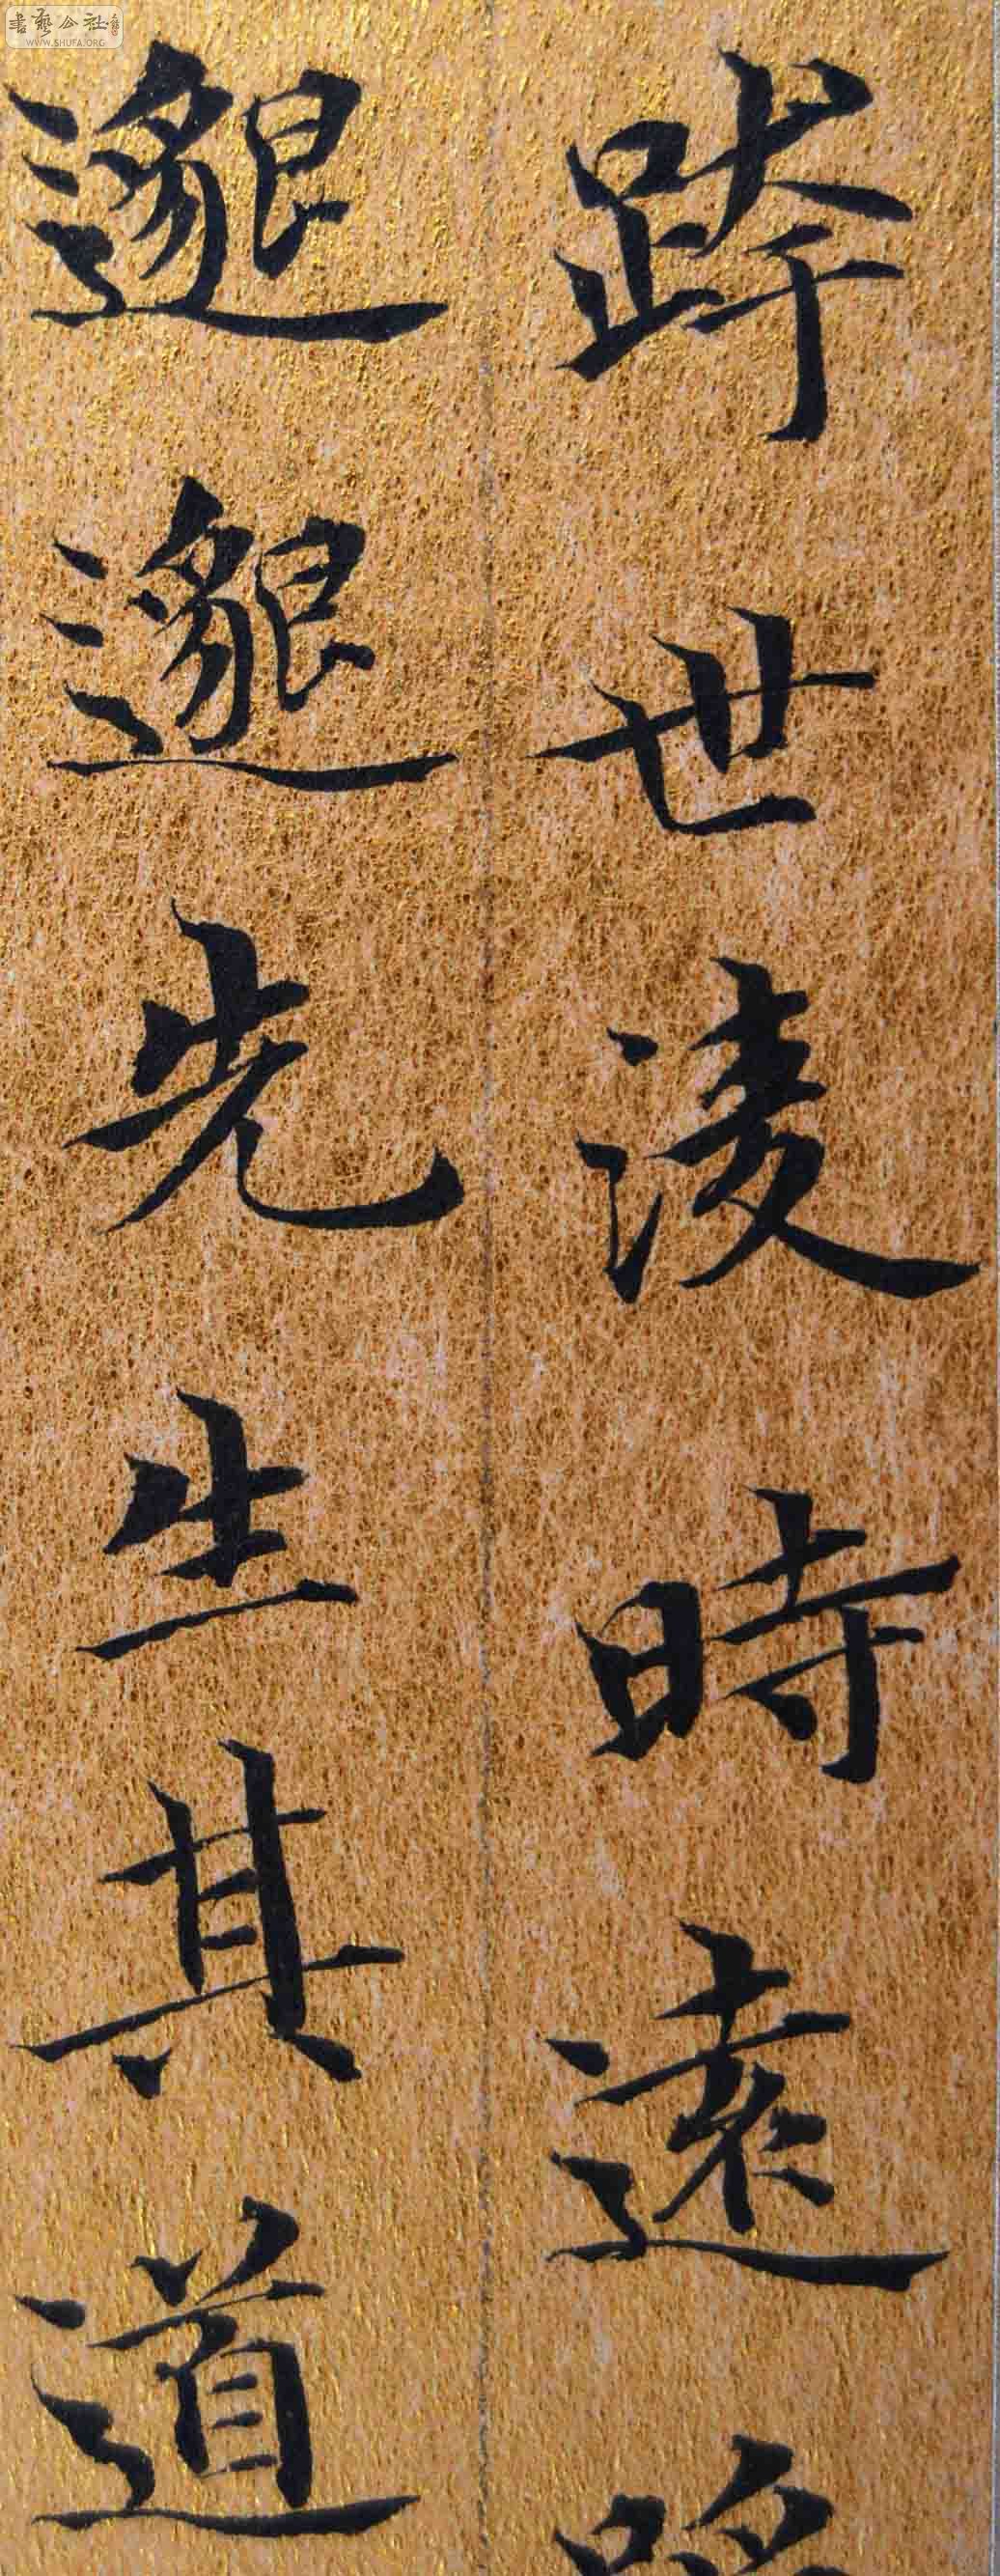 書藝公社
WWW.SHUFA.ORG
跨世凌時遠
邈邈先生其道